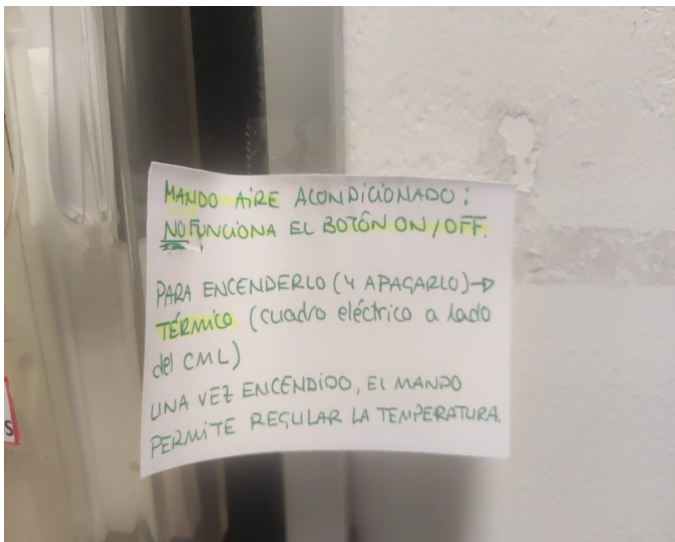 MANDO AIRE ACONDICIONADO:
NO FUNCIONA EL BOTÓN ON/OFF.
PARA ENCENDERLO (Y APAGARLO)→
TÉRMICO (cuadro eléctrico a lado
del CML)
UNA VEZ ENCENDIDO, EL MANDO
PERMITE REGULAR LA TEMPERATURA.
S